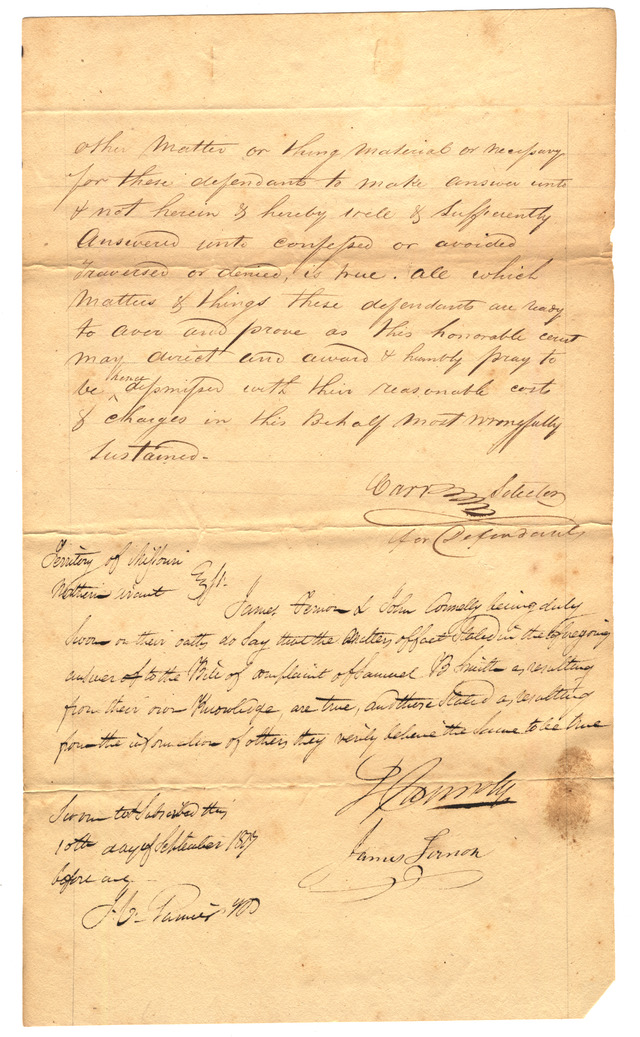 other Matter or thing Material or necessary
for these defendants to make answer unto
& not herein & hereby well & sufficiently
Answered unto confessed or avoided
traversed or denied, is true. All which
Matters & things these defendants are ready
to aver and prove as this honorable court
may direct and award & humbly pray to
be hence dismissed with their reasonable costs
& charges in this Behalf most wrongfully
sustained.
Carr Solicitor
for Defendants
Territory of Missouri
Northern circuit
James Vernon & John Connelly being duly
sworn on their oaths do say that the Matters of fact stated in the foregoing
answer to the Bill of complaint of Samuel B Smith as resulting
from their own Knowledge are true, and those stated as resulting
from the information of others they verily believe the same to be true
J Connelly
Sworn to & Subscribed this
10th day of September
James Vernon
before me